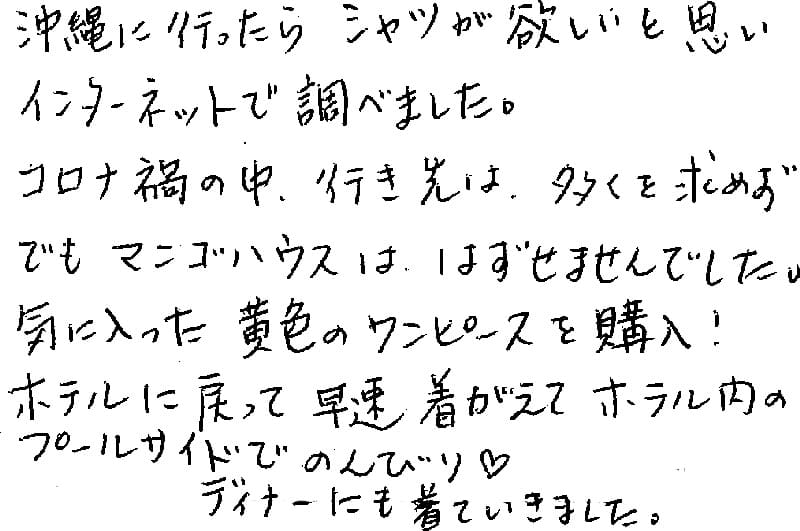 沖縄に行ったら シャツが欲しいと思い
インターネットで調べました。
コロナ禍の中、行き先は、多くを求めず
でも マンゴハウスは、はずせませんでした。
気に入った 黄色のワンピースを購入！
ホテルに戻って 早速 着がえて ホテル内の
プールサイドでのんびり♡
ディナーにも着ていきました。